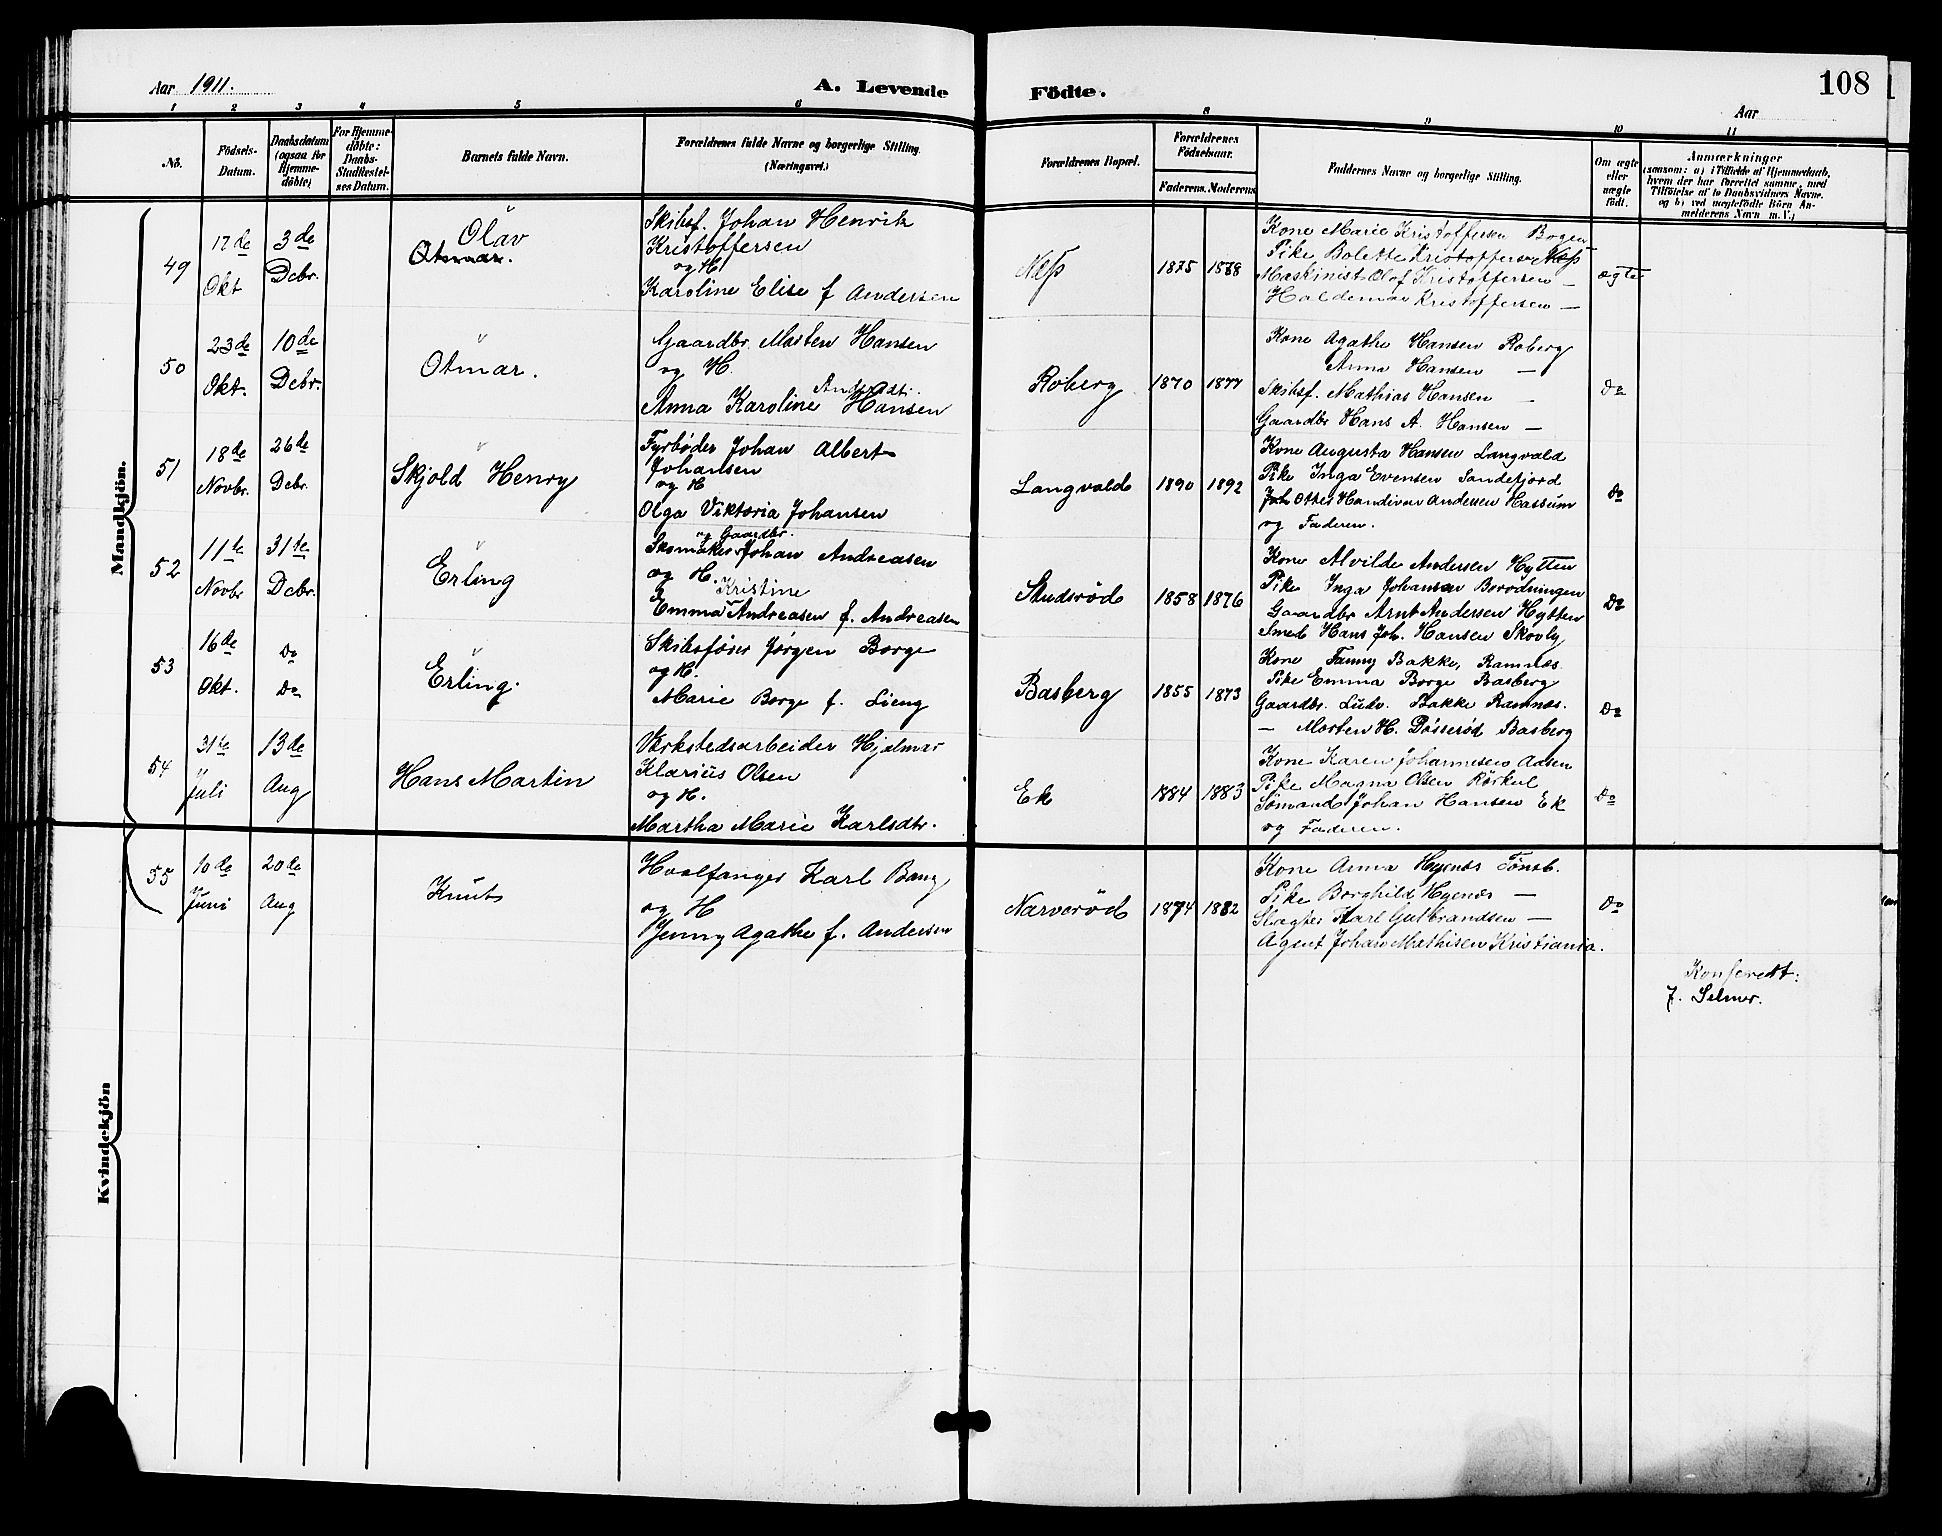 Aar 1911.
A. Levende Födte.
Aar
108
1 2 3 4 5 6 8 9 10 11
Nö.
Födsels-Datum.
Daabsdatum (ogsaa for Hjemmedöbte)
For Hjemmedöbte: Daabs-Stadfæstelses Datum.
Barnets fulde Navn.
Forældrenes fulde Navne og borgerlige Stilling. (Næringsvei.)
Forældrenes Bopæl.
Forældrenes Födselsaar.
Faderens. Moderens.
Faddernes Navne og borgerlige Stilling.
Om ægte eller uægte födt.
Anmærkninger
(saasom: a) i Tilfælde af Hjemmedaab, hvem der har forrettet samme, med Tilföielse af to Daabsvidners Navne. og b) ved uægtefödte Börn Anmelderens Navn m. V.)
Mandkjön.
49
17de Okt
3de Debr.
Olav
Otmar.
Skibsf. Johan Henrik
Kristoffersen
og H
Karoline Elise f Andersen
Næss
1875 1878
Kone Marie Kristoffersen Bogen
Pike Bolette Kristoffersen Næss
Maskinist Olof Kristoffersen —
Haldemar Kristoffersen —
ægte
50
23de Okt.
10de Debr.
Otmar.
Gaardbr. Morten Hansen
og H.
Anna Karoline Andersdtr. Hansen
Roberg
1870 1877
Kone Agathe Hansen Roberg
Anna Hansen —
Skibsf. Mathias Hansen —
Gaardbr Hans A. Hansen —
Do
51
18de Novbr.
26de Debr.
Skjold Henry
Fyrbøder Johan Albert
Johansen
og H
Olga Viktoria Johansen
Langvald
1890 1892
Kone Augusta Hansen Langvald
Pike Inga Evensen Sandefjord
Andersen Hassum
og Faderen.
Do
52
11te Novbr
31te Debr.
Erling
og Gaardbr.
Skomaker Johan Andreasen
og H.
Kristine
Emma Andreasen f. Andreasen
Studsrød
1858 1876
Kone Alvilde Andersen Hytten
Pike Inga Johansen Borødningen
Gaardbr Arnt Andersen Hytten
Smed Hans Joh. Hansen Skovly
Do
53
16de Okt.
Do Do
Erling.
Skibsfører Jørgen Borge
og H.
Marie Borge f. Lieng
Basberg
1855 1873
Kone Fanny Bakke, Ramnæs.
Pike Emma Borge Basberg
Gaardbr. Ludv. Bakke Ramnæs.
— Morten H. Døsserød Basberg
Do
54
31te Juli
13de Aug
Hans Martin
Verkstedsarbeider Hjalmar
Klarius Olsen
og H.
Martha Marie Karlsdtr.
Ek
1884 1883
Kone Karen Johannesen Aasen
Pike Magna Olsen Rørkul
Sømand Johan Hansen Ek
og Faderen.
Do
55
10de Juni
20de Aug
Knut
Hvalfanger Karl Bang
og H
Jenny Agathe f. Andersen
Narverød
1874 1882
Kone Anna Hyenæs Tønsb.
Pike Borghild Hyenæs —
Slagter Karl Gulbrandsen —
Agent Johan Mathisen Kristiania.
Do
Konfereret:
J. Selmer.
Kvindekjön